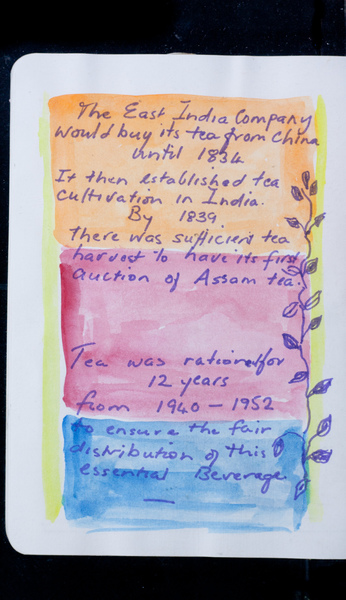 The East India Company
would buy its tea from China
until 1834
It then established tea
cultivation in India.
By 1839
there was sufficient tea
harvest to have its first
auction of Assam tea.
Tea was rationed for
12 years
from 1940 - 1952
to ensure the fair
distribution of this
essential Beverage